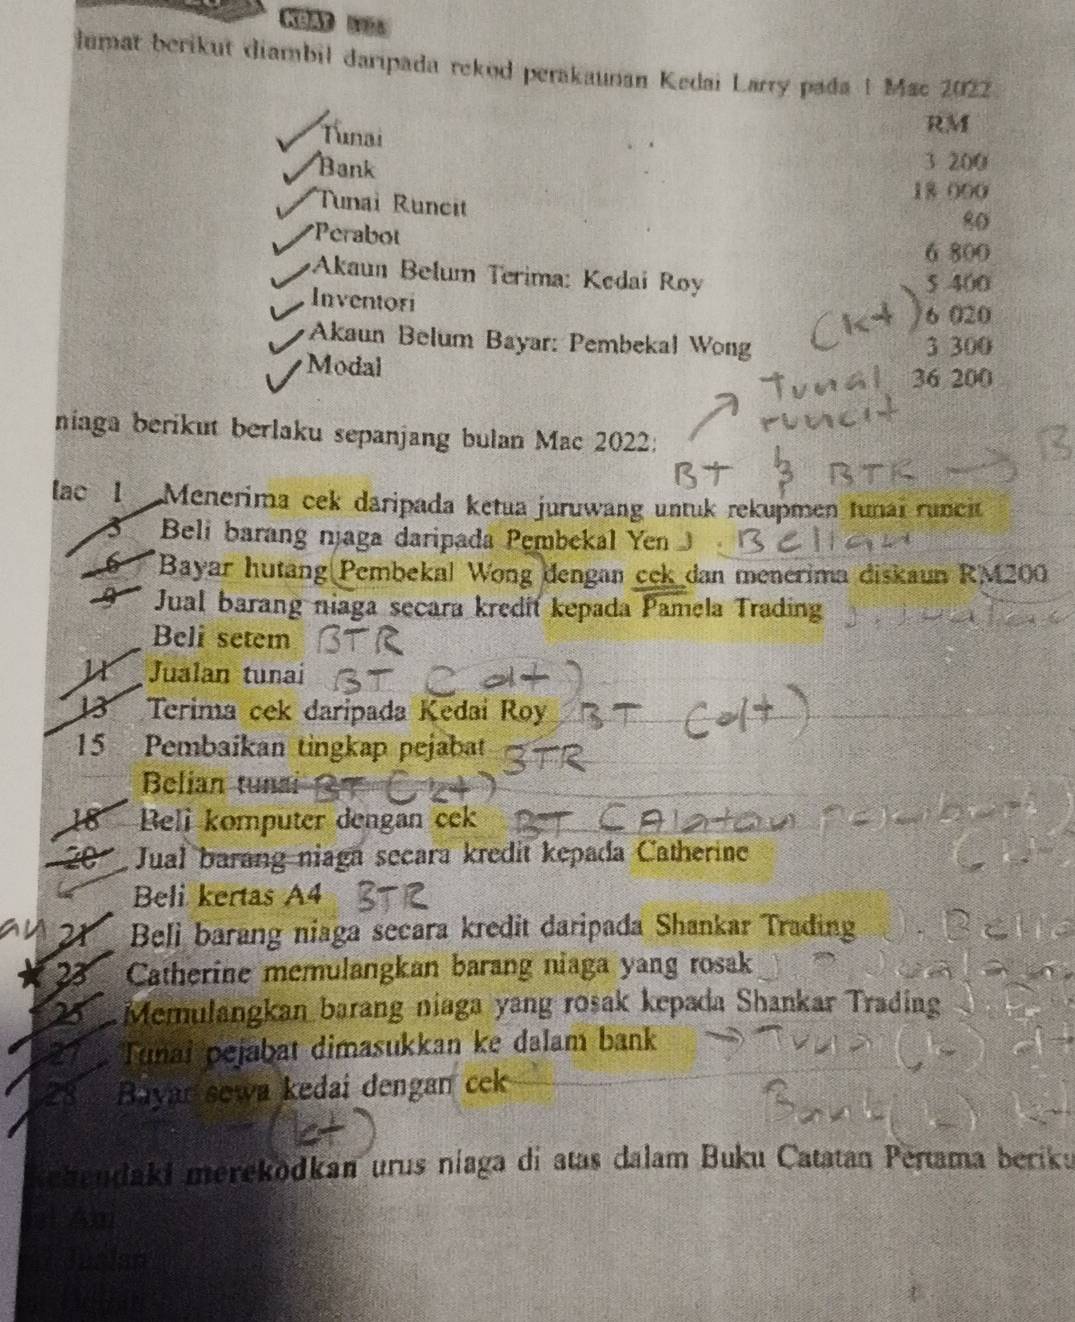 lumat berikut diambil daripada rekod perakaunan Kedai Larry pada 1 Mac 2022
RM
Tunai 3 200
Bank 18 000
Tunai Runcit 80
Perabot 6 800
Akaun Belum Terima: Kedai Roy 5 400
Inventori (kt) 6 020
Akaun Belum Bayar: Pembekal Wong 3 300
Modal 36 200
Tunai
runcit
niaga berikut berlaku sepanjang bulan Mac 2022:
BT & BTR → B
lac 1 Menerima cek daripada ketua juruwang untuk rekupmen tunai runcit
3 Beli barang niaga daripada Pembekal Yen J. Belian
6 Bayar hutang Pembekal Wong dengan cek dan menerima diskaun RM200
9 Jual barang niaga secara kredit kepada Pamela Trading J. Jualan
Beli setem BTR
11 Jualan tunai BT (dt)
13 Terima cek daripada Kedai Roy BT (dt)
15 Pembaikan tingkap pejabat BTR
Belian tunai BT (kt)
18 Beli komputer dengan cek BT (Alatan
20 Jual barang niaga secara kredit kepada Catherine
Beli kertas A4 BTR
an 21 Beli barang niaga secara kredit daripada Shankar Trading J. Belia
★ 23 Catherine memulangkan barang niaga yang rosak
25 Memulangkan barang niaga yang rosak kepada Shankar Trading
27 Tunai pejabat dimasukkan ke dalam bank → Tunai (b) dt
28 Bayar sewa kedai dengan cek
Bank (b) kt
(kt)
kehendaki merekodkan urus niaga di atas dalam Buku Catatan Pertama beriku
Am
Jualan